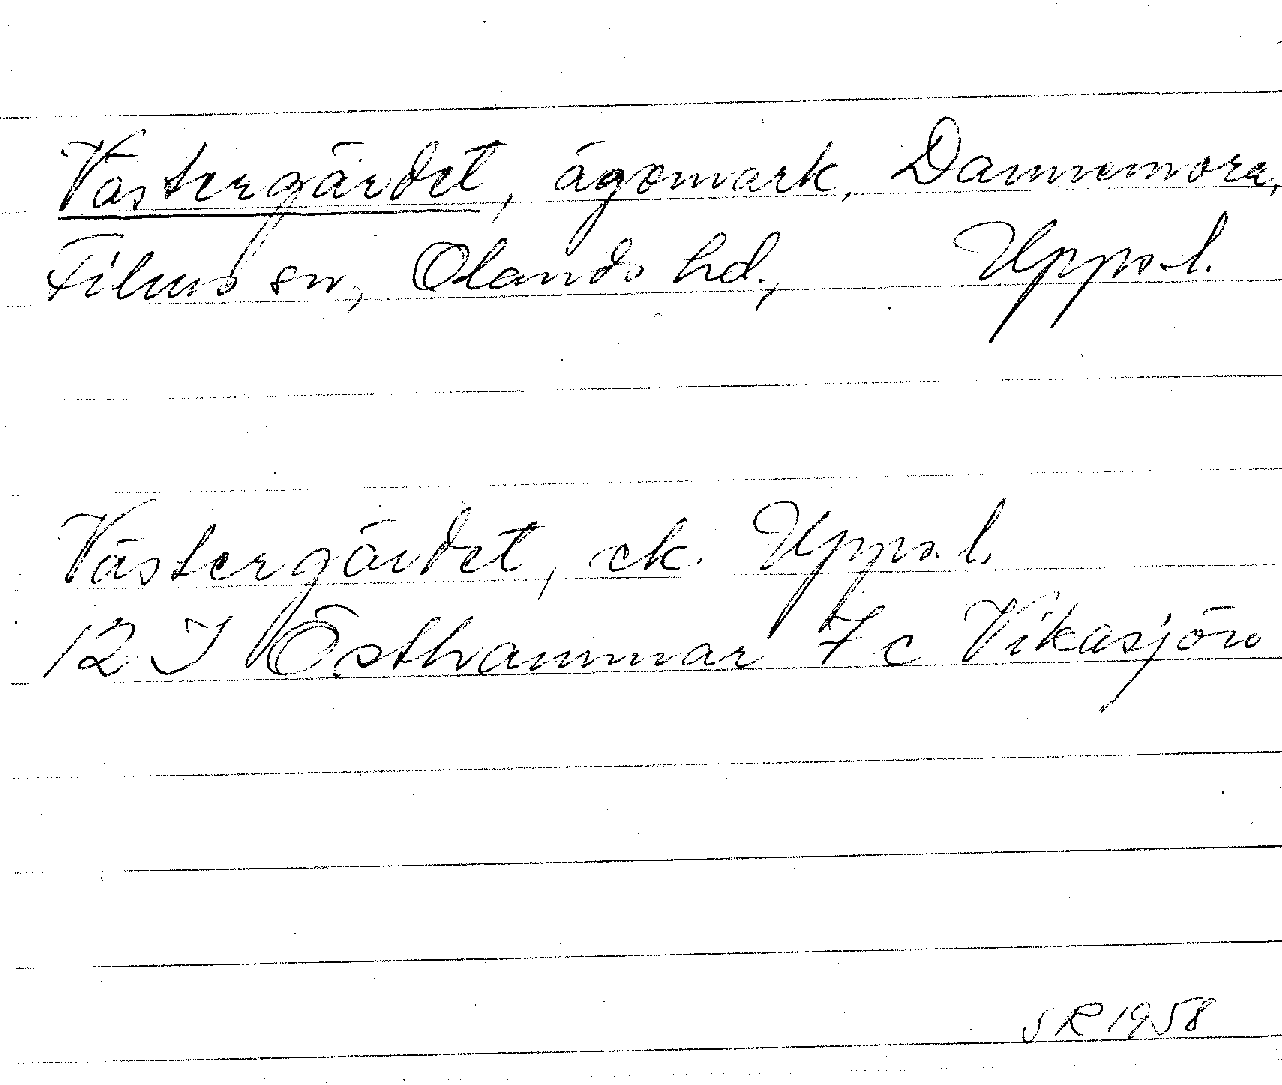 Västergärdet, ägomark, Dannemora,
Films sn, Olands hd., Upps. l.
Västergärdet, ek. Upps. l.
12 I Östhammar 7 c Vikasjön
SR 1958